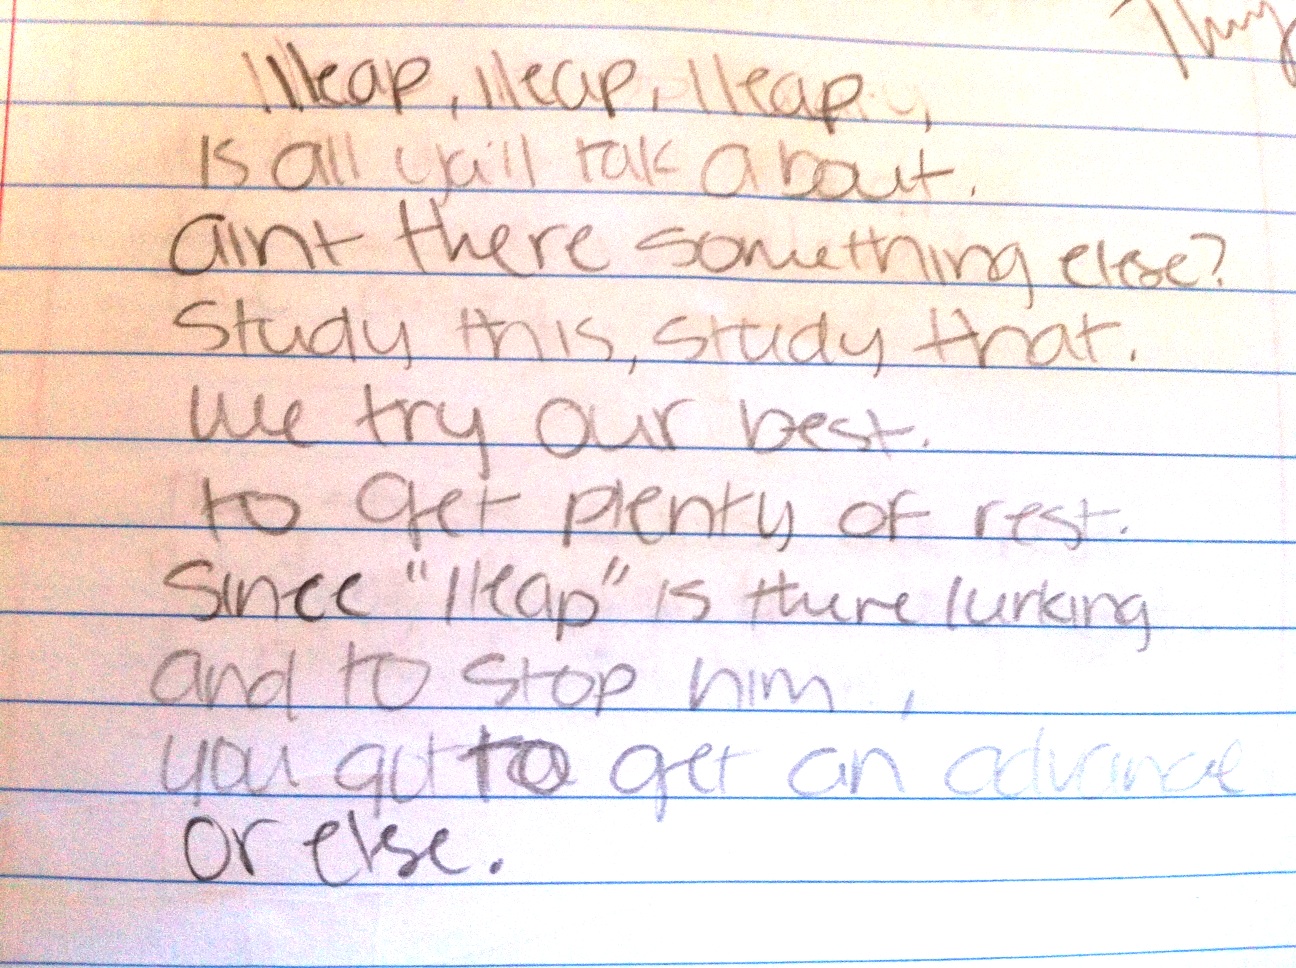 Ileap, Ileap, Ileap,
Is all ya'll talk about.
aint there something else?
Study this, study that.
We try our best.
to get plenty of rest.
Since "Ileap" is there lurking
and to stop him,
you got to get an advance
or else.